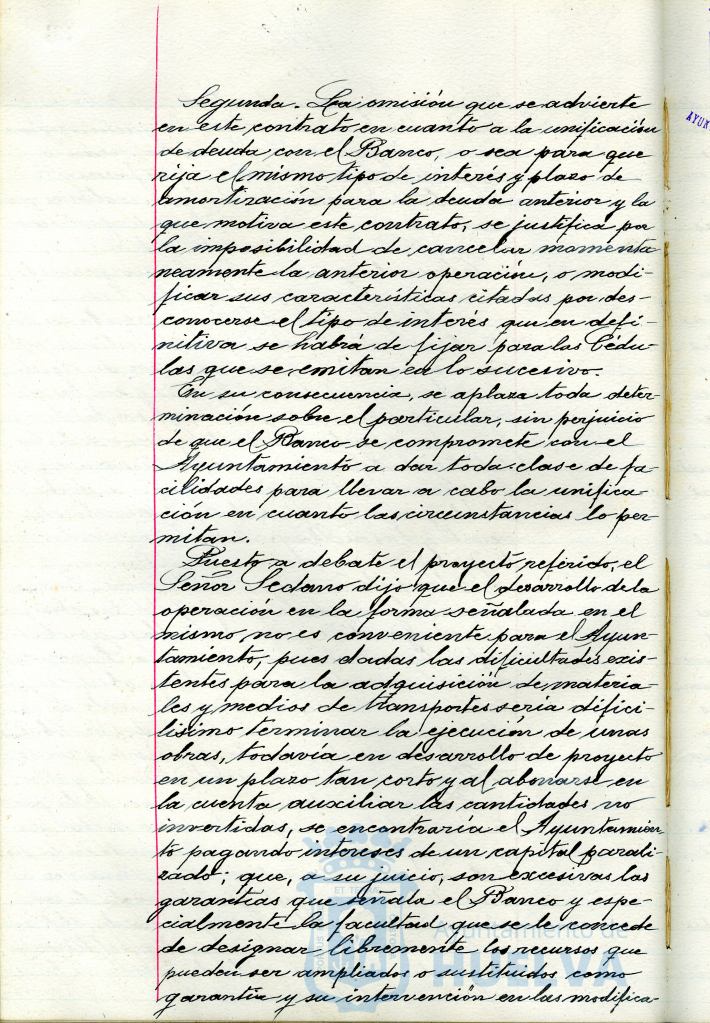 Segunda.- La omisión que se advierte
en este contrato en cuanto a la unificación
de deuda con el Banco, o sea para que
rija el mismo tipo de interés y plazo de
amortización para la deuda anterior y la
que motiva este contrato, se justifica por
la imposibilidad de cancelar momenta-
neamente la anterior operación, o modi-
ficar sus características citadas por des-
conocerse el tipo de interés que en defi-
nitiva se habrá de fijar para las Cédu-
las que se emitan en lo sucesivo.
En su consecuencia, se aplaza toda deter-
minación sobre el particular, sin perjuicio
de que el Banco se compromete con el
Ayuntamiento a dar toda clase de fa-
cilidades para llevar a cabo la unifica-
ción en cuanto las circunstancias lo per-
mitan.
Puesto a debate el proyecto referido, el
Señor Sedano dijo que el desarrollo de la
operación en la forma señalada en el
mismo, no es conveniente para el Ayun-
tamiento, pues dadas las dificultades exis-
tentes para la adquisición de materia-
les y medios de transportes seria difici-
lisimo terminar la ejecución de unas
obras, todavía en desarrollo de proyecto
en un plazo tan corto y al abonarse en
la cuenta auxiliar las cantidades no
invertidas, se encontraría el Ayuntamien-
to pagando intereses de un capital parali-
zado; que, a su juicio, son excesivas las
garantías que señala el Banco y espe-
cialmente la facultad que se le concede
de designar libremente los recursos que
pueden ser ampliados o sustituidos como
garantía y su intervención en las modifica-
AYUN
Ayuntamiento de
HUELVA